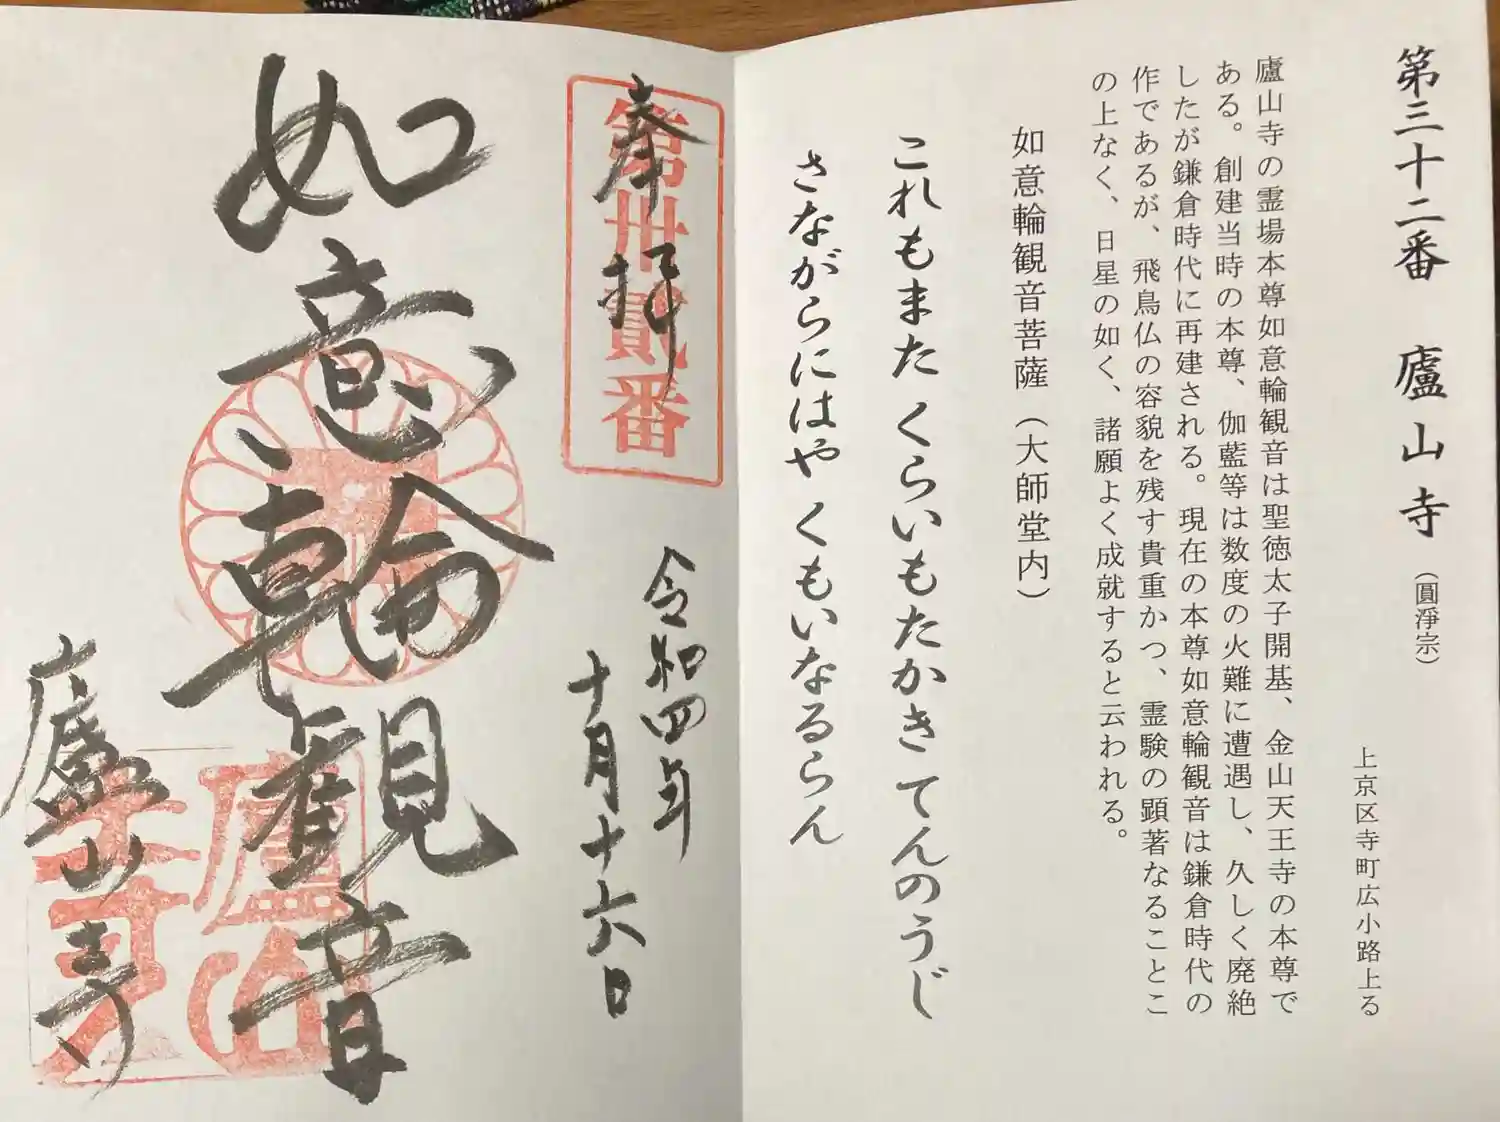 第三十二番 廬山寺（圓淨宗）
上京区寺町広小路上る
廬山寺の霊場本尊如意輪観音は聖徳太子開基、金山天王寺の本尊で
ある。創建当時の本尊、伽藍等は数度の火難に遭遇し、久しく廃絶
したが鎌倉時代に再建される。現在の本尊如意輪観音は鎌倉時代の
作であるが、飛鳥仏の容貌を残す貴重かつ、霊験の顕著なることこ
の上なく、日星の如く、諸願よく成就すると云われる。
如意輪観音菩薩（大師堂内）
これもまた くらいもたかき てんのうじ
さながらにはや くもいなるらん
第卅貳番
奉拝
令和四年
十月十六日
如意輪観音
廬山寺
廬山
寺印